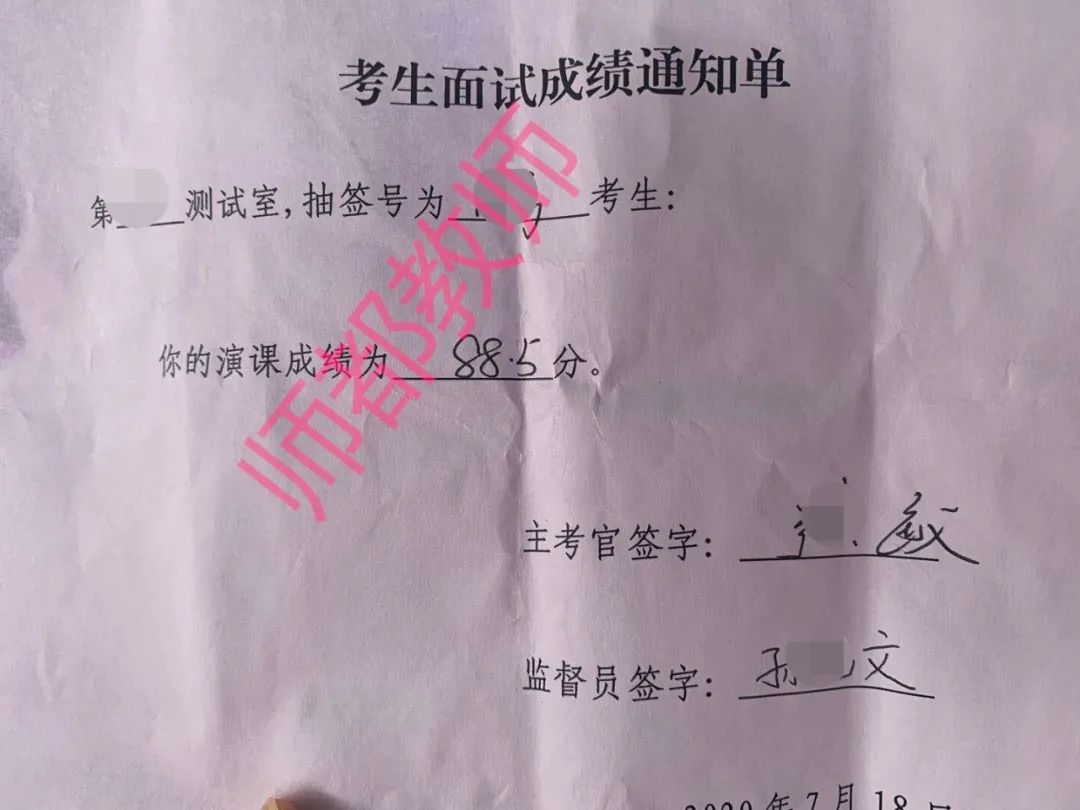 考生面试成绩通知单
第 测试室,抽签号为 考生:
师都教师
你的演课成绩为 88.5 分。
主考官签字: 敏
监督员签字: 孙 文
2020年7月18日